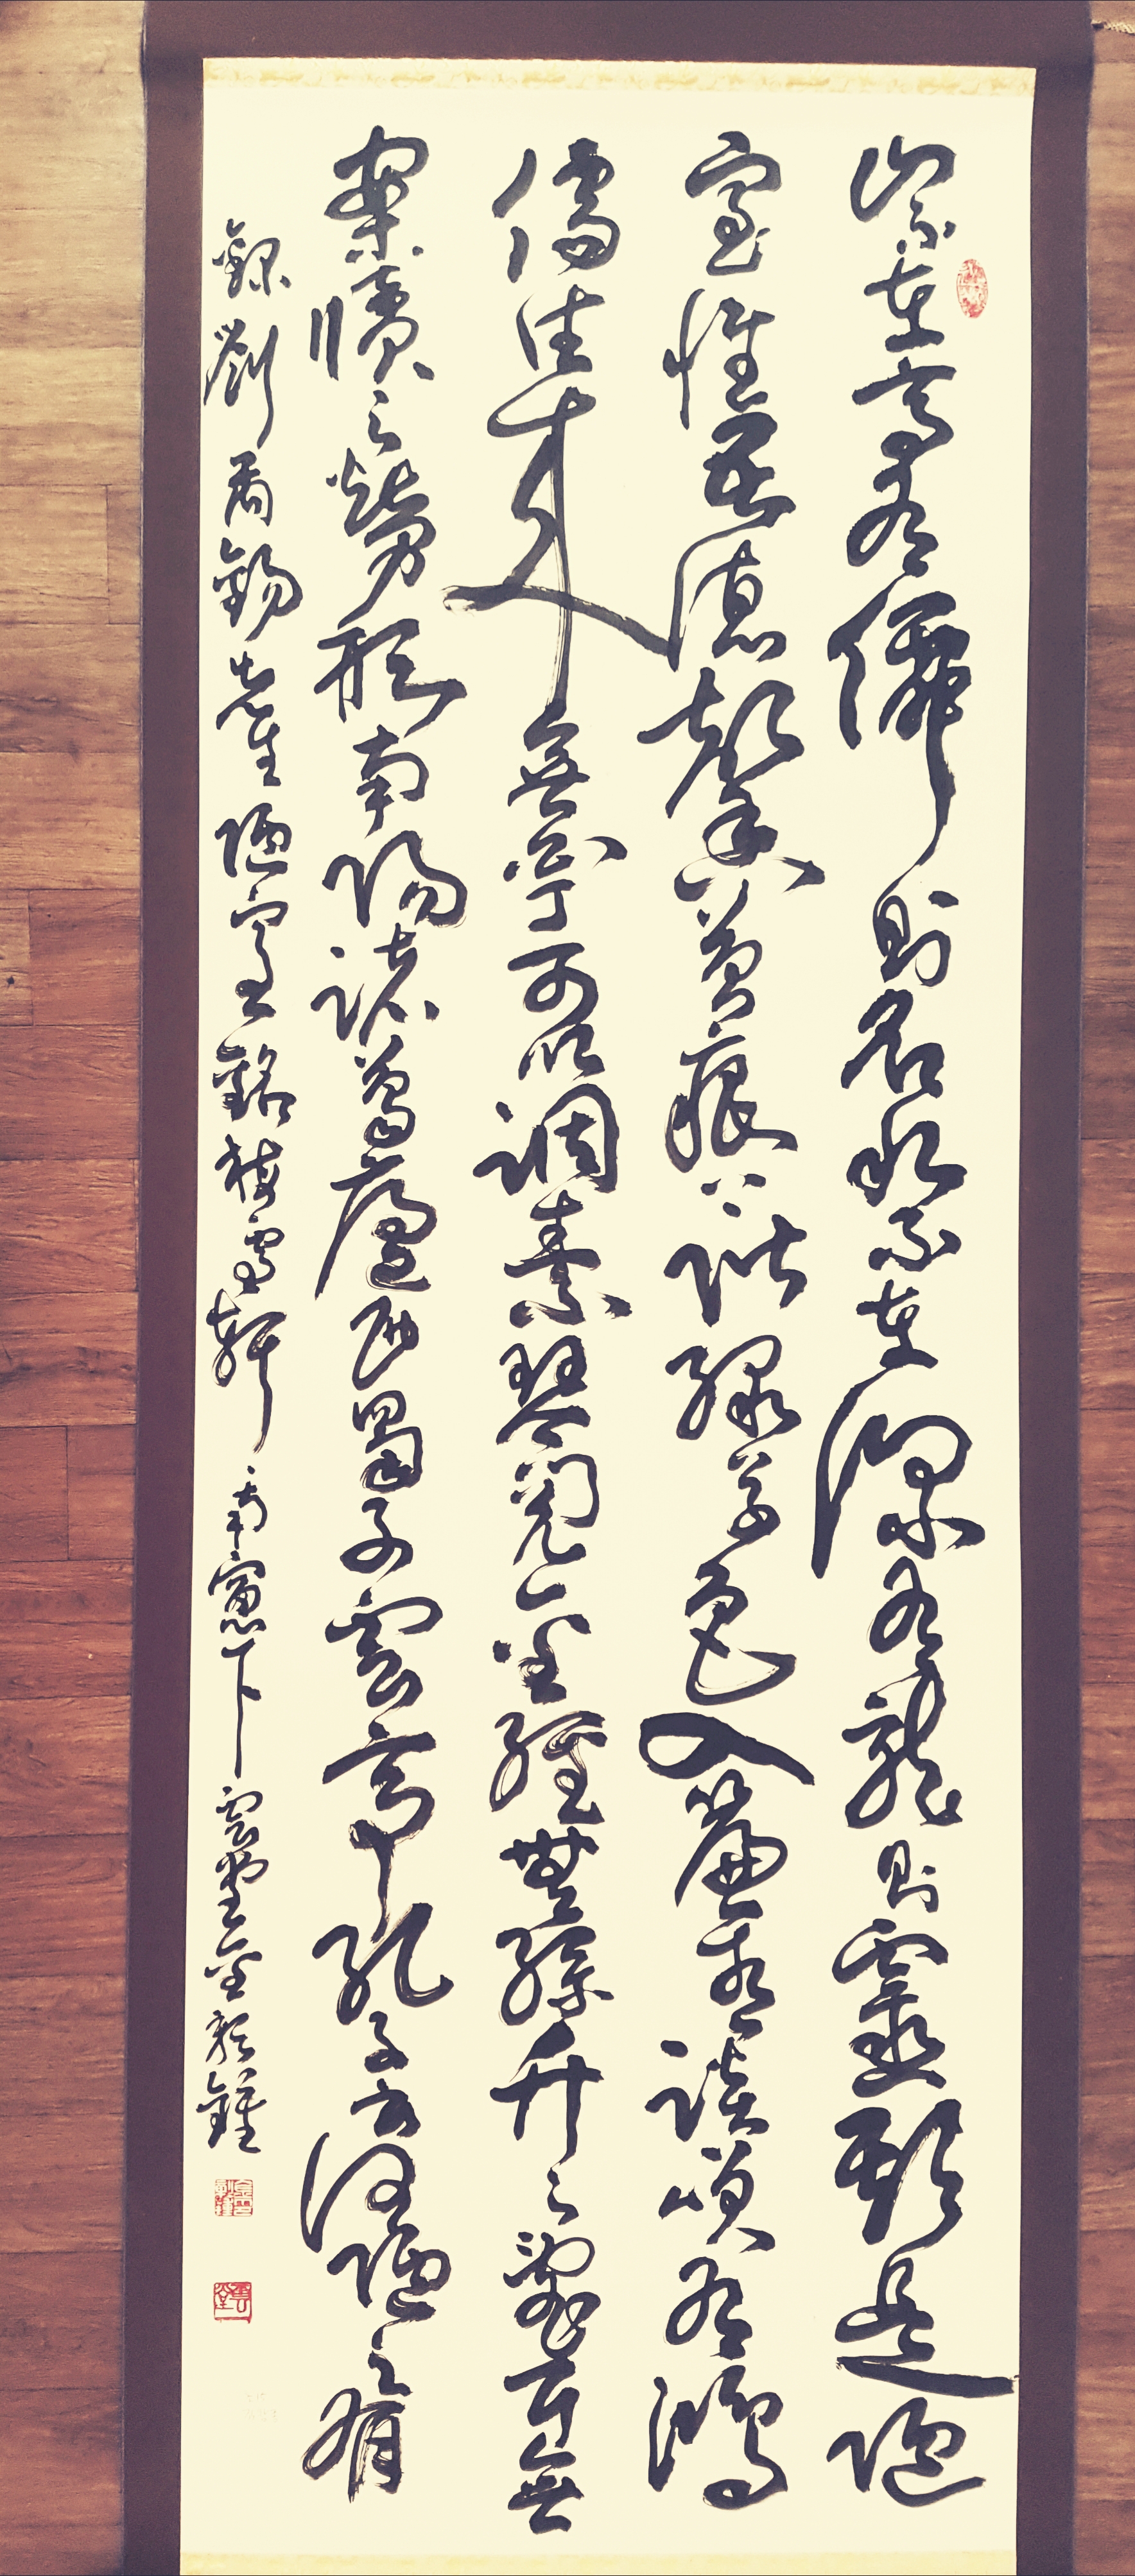 山不在高有僊則名水不在深有龍則靈斯是陋
室惟吾德馨苔痕上階綠草色入簾青談笑有鴻
儒往來無白丁可以調素琴閱金經無絲竹之亂耳無
案牘之勞形南陽諸葛廬西蜀子雲亭孔子云何陋之有
錄劉禹錫先生陋室銘雪軒南窓下雲堂金鍾
雲堂